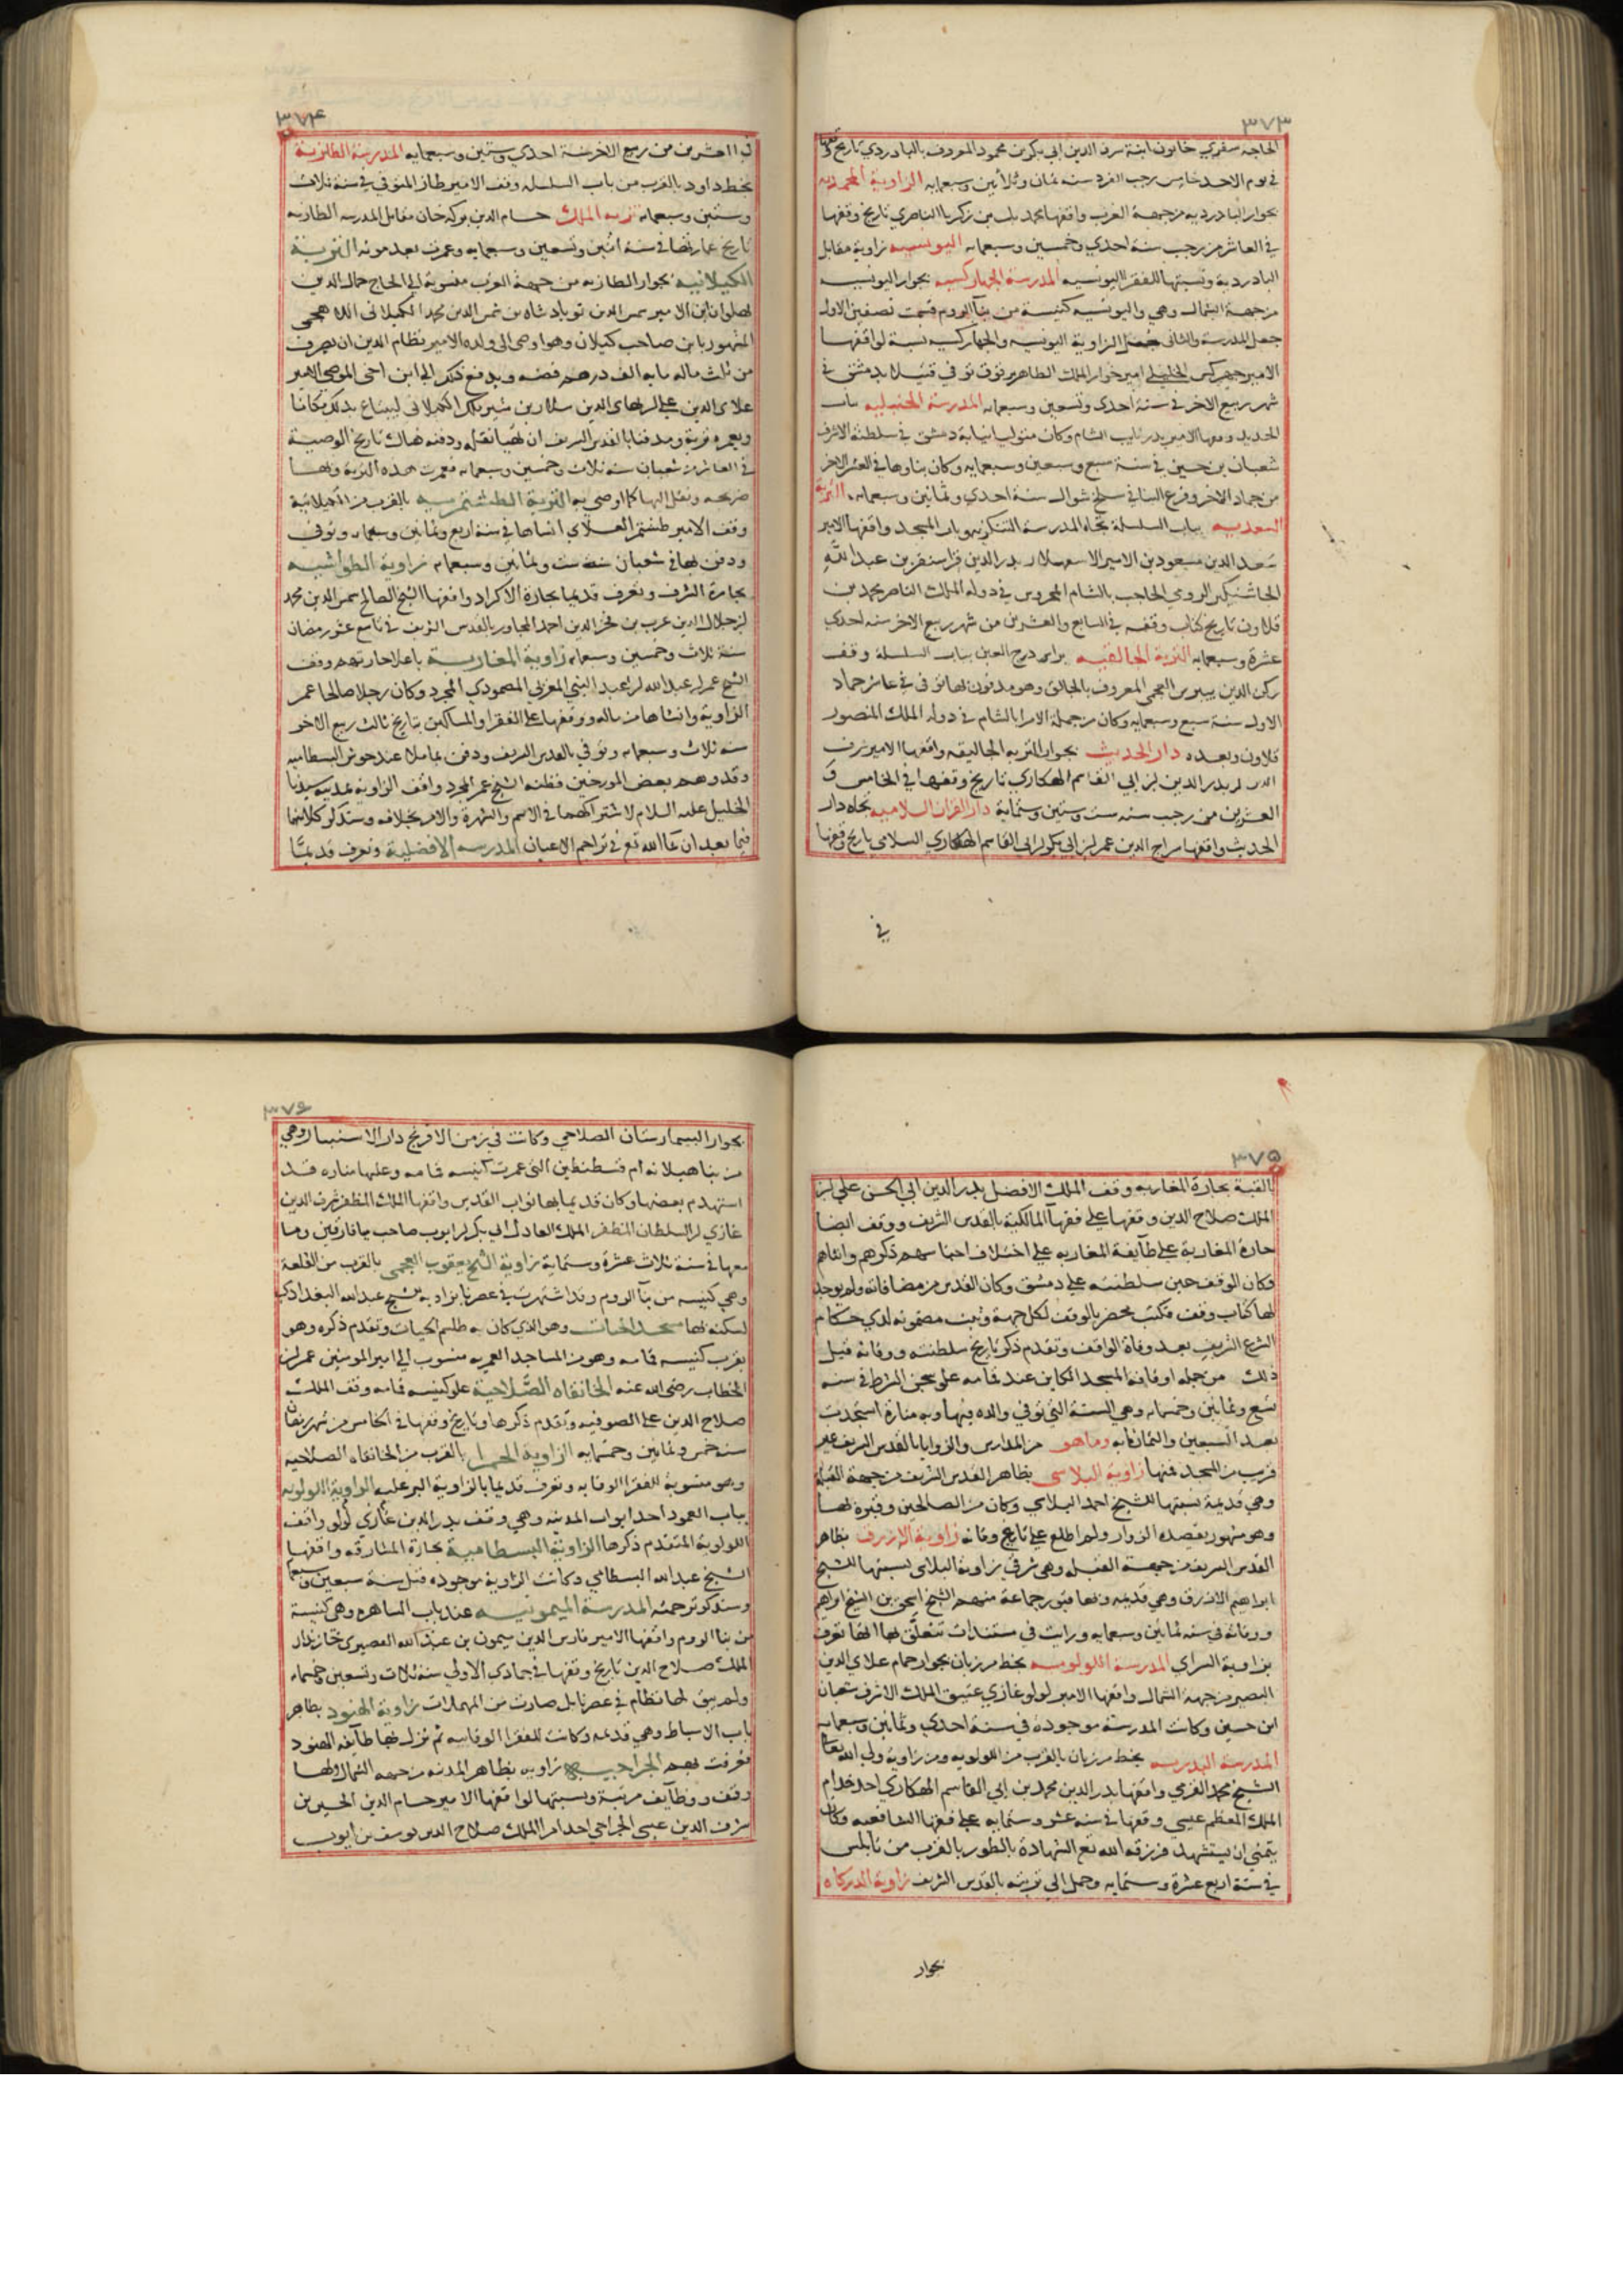 ٣٧٣
الحاجه سفري خاتون ابنة شرف الدين ابي بكر بن محمود المعروف بالبادردي تاريخ وقفها
في يوم الاحد خامس رجب الفرد سنه ثمان وثلاثين وسبعمايه الزاوية المحمديه
بجوار البادرديه من جهة الغرب واقفها محمد بك بن زكريا الناصري تاريخ وقفها
في العاشر من رجب سنة احدي وخمسين وسبعمايه اليونسيه زاوية مقابل
البادردية ونسبتها للفقرا اليونسيه المدرسة الجهاركسيه بجوار اليونسيه
من جهة الشمال وهي واليونسيه كنيسة من بنآ الروم قسمت نصفين الاول
جعل المدرسة والثاني جعل الزاوية اليونسيه والجهاركسيه نسبة لواقفها
الامير جهركس الخليلي امير خوار الملك الظاهر برقوق توفي قتيلا بدمشق في
شهر ربيع الاخر في سنة احدي وتسعين وسبعمايه المدرسة الحنبليه بباب
الحديد وقفها الامير بيدمر نايب الشام وكان متوليا نيابة دمشق في سلطنة الاشرف
شعبان بن حسين في سنة سبع وسبعين وسبعمايه وكان بناوها في العشر الاخر
من جماد الاخر وفرغ البنا في سلخ شوال سنة احدي وثمانين وسبعمايه، التربة
السعديه بباب السلسلة تجاه المدرسة التنكزيه وباب المسجد واقفها الامير
سعد الدين مسعود بن الامير الاسفهسلار بدر الدين قراسنقر بن عبد الله
الجاشنكير الرومي الحاجب بالشام المحروس في دولة الملك الناصر محمد بن
قلاون تاريخ كتاب وقفه في السابع والعشرين من شهر ربيع الاخر سنه احدي
عشرة وسبعمايه التربة الجالقيه براس درج العين بباب السلسلة وقف
ركن الدين بيبرس العجمي المعروف بالجالق وهو مدفون بها توفي في عاشر جماد
الاولي سنة سبع وسبعمايه وكان من جملة الامرا بالشام في دولة الملك المنصور
قلاون وبعده دار الحديث بجوار التربه الجالقيه واقفها الامير شرف
الدين بدر الدين بن ابي القاسم الهكاري تاريخ وقفها في الخامس و
العشرين من رجب سنه ست وستين وستماية دار القران السلاميه تجاه دار
الحديث واقفها سراج الدين عمر بن ابي بكر بن ابي القاسم الهكاري السلامي تاريخ وقفها
في
٣٧٤
في العشرين من ربيع الاخر سنة احدي وستين وسبعمايه المدرسة الطازية
بخط داود بالقرب من باب السلسله وقف الامير طاز المتوفي في سنة ثلاث
وستين وسبعمايه تربه الملك حسام الدين بركه خان مقابل المدرسه الطازيه
تاريخ عمارتها في سنة اثنين وتسعين وسبعمايه وعمرت بعد موته التربة
الكيلانيه بجوار الطازيه من جهة الغرب منسوبة الي الحاج جمال الدين
بهلوان ابن الامير شمس الدين قوباد شاه بن شمس الدين محمد الكيلاني اللاهجي
المشهور بابن صاحب كيلان وهو اوصي الي ولده الامير نظام الدين ان يصرف
من ثلث ماله مايه الف درهم فضه ويدفع ذلك الي ابن اخي الموصي الامير
علاي الدين علي بن بهاي الدين سلار بن شير ملك الكيلاني ليبتاع بذلك مكانا
ويعمره تربة ومدفنا بالقدس الشريف ان تهيا نقله ودفنه هناك تاريخ الوصية
في العاشر من شعبان سنه ثلاث وخمسين وسبعمايه فعمرت هذه التربة وبها
ضريحه ونقل اليها كما اوصي به التربة الطشتمريه بالقرب من الكيلانية
وقف الامير طشتمر العلاي انشاها في سنة اربع وثمانين وسبعمايه وتوفي
ودفن بها في شعبان سنة ست وثمانين وسبعمايه زاوية الطواشيه
بحارة الشرف وتعرف قديما بحارة الاكراد واقفها الشيخ الصالح شمس الدين محمد
بن جلال الدين عرب بن فخر الدين احمد المجاور بالقدس الشريف في تاسع عشر رمضان
سنة ثلاث وخمسين وسبعمايه زاوية المغاربة باعلا حارتهم وقف
الشيخ عمر بن عبد الله بن عبد النبي المغربي المصمودي المجرد وكان رجلا صالحا عمر
الزاوية وانشاها من ماله ووقفها علي الفقرا والمساكين بتاريخ ثالث ربيع الاخر
سنه ثلاث وسبعمايه وتوفي بالقدس الشريف ودفن بماملا عند حوش البسطاميه
وقد وهم بعض المورخين فظنه الشيخ عمر المجرد واقف الزاوية بمدينة سيدنا
الخليل عليه السلام لاشتراكهما في الاسم والشهرة والامر بخلافه وسنذكر كلا منهما
فيما بعد ان شا الله تع في تراجم الاعيان المدرسه الافضلية وتعرف قديما
٣٧٥
بالقبة بحارة المغاربه وقف الملك الافضل نور الدين ابي الحسن علي بن
الملك صلاح الدين وقفها علي فقهآ المالكية بالقدس الشريف ووقف ايضا
حارة المغاربة علي طآيفة المغاربه علي اختلاف اجناسهم ذكورهم واناثهم
وكان الوقف حين سلطنته علي دمشق وكان القدس من مضافاته ولم يوجد
لها كتاب وقف فكتب محضر بالوقف لكل جهة وثبت مضمونه لدي حكام
الشرع الشريف بعد وفاة الواقف وتقدم ذكر تاريخ سلطنته ووفاته قبل
ذلك من جملة اوقافه المسجد الكاين عند قمامه علوي سجن الشرط في سنه
تسع وثمانين وخمسمايه وهي السنة التي توفي والده فيها وبه منارة استجدت
بعد السبعين والثمانمايه وما هو من المدارس والزوايا بالقدس الشريف غير
قريب من المسجد فمنها زاوية البلاسي بظاهر القدس الشريف من جهة القبله
وهي قديمة نسبتها للشيخ احمد البلاسي وكان من الصالحين وقبره بها
وهو مشهور يقصده الزوار ولم اطلع علي تاريخ وفاته زاوية الازرق بظاهر
القدس الشريف من جهة القبله وهي شرقي زاوية البلاسي نسبتها للشيخ
ابراهيم الازرق وهي قديمه وبها قبور جماعة منهم الشيخ اسحق بن الشيخ ابراهيم
ووفاته في سنه ثمانين وسبعمايه ورايت في مستندات تتعلق بها انها تعرف
بزاوية السراي المدرسة اللولويه بخط مرزبان بجوار حمام علاي الدين
البصير من جهة الشمال واقفها الامير لولو غازي عتيق الملك الاشرف شعبان
ابن حسين وكانت المدرسة موجودة في سنة احدي وثمانين وسبعمايه
المدرسة البدريه بخط مرزبان بالقرب من اللولويه ومن زاوية ولي الله تعالي
الشيخ محمد القرمي واقفها بدر الدين محمد بن ابي القاسم الهكاري احد خدام
الملك المعظم عيسي وقفها في سنه عشر وستمايه علي فقها الشافعيه وكان
يتمني ان يستشهد فرزقه الله تع الشهادة بالطور بالقرب من نابلس
في سنة اربع عشرة وستمايه وحمل الي تربته بالقدس الشريف زاوية الدركاه
بجوار
٣٧٦
بجوار البيمارستان الصلاحي وكانت في زمن الافرنج دار الاسبتار وهي
من بنا هيلانه ام قسطنطين التي عمرت كنيسه قمامه وعليها مناره قد
استهدم بعضها وكان قديما بها نواب القدس واقفها الملك المظفر شرف الدين
غازي بن السلطان المظفر الملك العادل ابي بكر بن ايوب صاحب ميافارقين وما
معها في سنة ثلاث عشرة وستماية زاوية الشيخ يعقوب العجمي بالقرب من القلعة
وهي كنيسه من بنآ الروم وقد اشتهرت في عصرنا بزاوية شيخ عبد الله البغدادي
لسكنه بها مسجد الحيات وهو الذي كان به طلسم الحيات وتقدم ذكره وهو
بقرب كنيسه قمامه وهو من المساجد العمريه منسوب الي امير المومنين عمر بن
الخطاب رضي الله عنه الخانقاه الصلاحية علو كنيسه قمامه وقف الملك
صلاح الدين علي الصوفيه وتقدم ذكرها وتاريخ وقفها في الخامس من شهر رمضان
سنه خمس وثمانين وخمسمايه الزاوية الحمرا بالقرب من الخانقاه الصلاحيه
وهو منسوبة للفقرا الوفايه وتعرف قديما بالزاوية البرعليه الزاوية اللولويه
بباب العمود احد ابواب المدينه وهي وقف بدر الدين غازي لولو واقف
اللولوية المتقدم ذكرها الزاوية البسطامية بحارة المشارقه واقفها
الشيخ عبد الله البسطامي وكانت الزاوية موجوده قبل سنة سبعين وسبعمايه
وسنذكر ترجمته المدرسة الميمونيه عند باب الساهره وهي كنيسة
من بنا الروم واقفها الامير فارس الدين ميمون بن عبد الله القصيري خازندار
الملك صلاح الدين تاريخ وقفها في جمادي الاولي سنة ثلاث وتسعين وخمسمايه
ولم يبق لها نظام في عصرنا بل صارت من المهملات زاوية الهنود بظاهر
باب الاسباط وهي قديمه وكانت للفقرا الرفاعيه ثم نزل بها طآيفه الهنود
فعرفت بهم الجراحيه زاويه بظاهر المدينه من جهه الشمال ولها
وقف ووظآيف مرتبة ونسبتها لواقفها الامير حسام الدين الحسين بن
شرف الدين عيسي الجراحي احد امرا الملك صلاح الدين يوسف بن ايوب